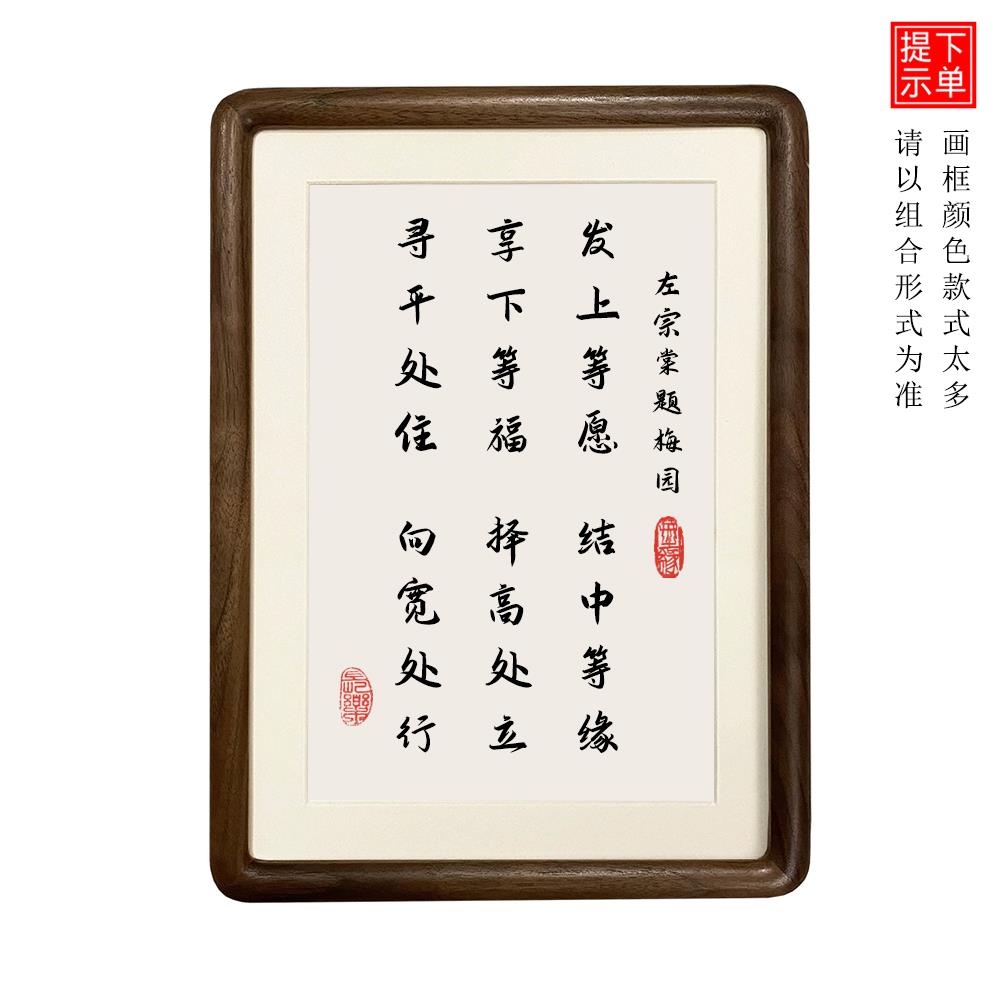 左宗棠题梅园
发上等愿 结中等缘
享下等福 择高处立
寻平处住 向宽处行
無緣
長樂
下单
提示
画框颜色款式太多
请以组合形式为准